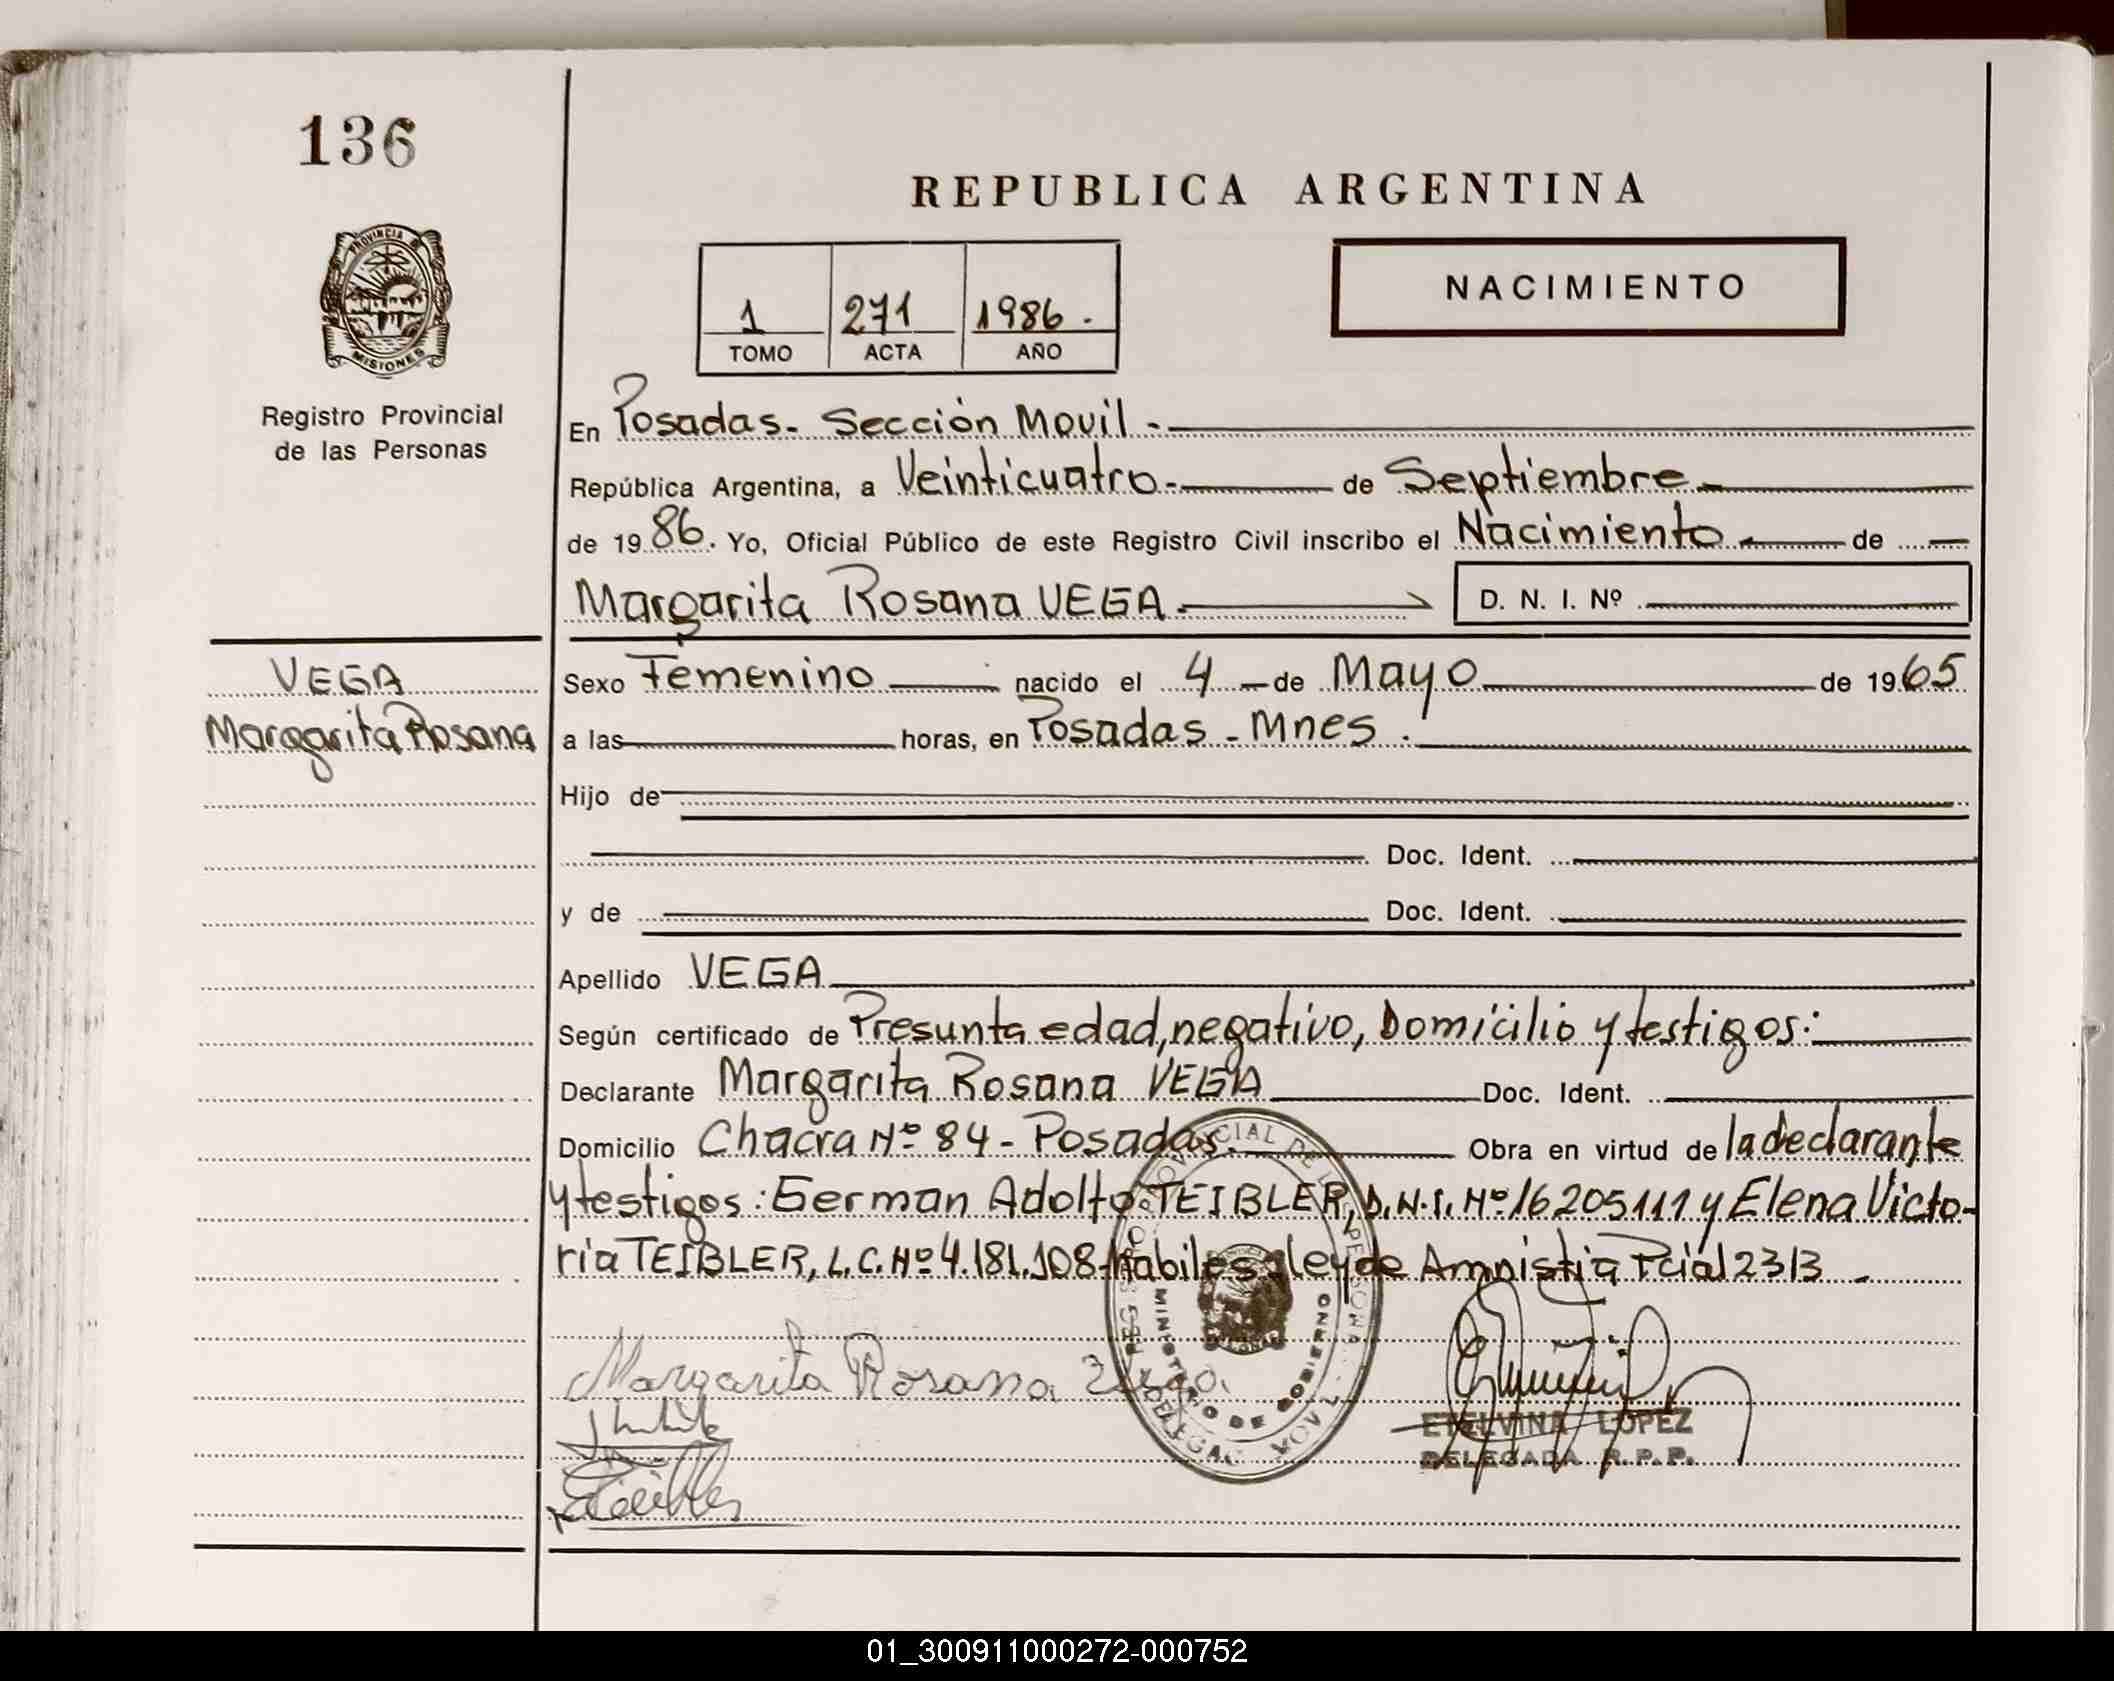 136
REPUBLICA ARGENTINA
PROVINCIA DE
MISIONES
NACIMIENTO
1 271 1986.
TOMO ACTA AÑO
Registro Provincial
de las Personas
En Posadas- Sección Movil.-
República Argentina, a Veinticuatro.- de Septiembre.-
de 1986. Yo, Oficial Público de este Registro Civil inscribo el Nacimiento de
Margarita Rosana VEGA.- D. N. I. Nº
VEGA
Margarita Rosana
Sexo Femenino nacido el 4 de Mayo de 1965
a las horas, en Posadas - Mnes.
Hijo de
Doc. Ident.
y de Doc. Ident.
Apellido VEGA
Según certificado de Presunta edad, negativo, Domicilio y testigos:
Declarante Margarita Rosana VEGA Doc. Ident.
Domicilio Chacra Nº 84 - Posadas. Obra en virtud de la declarante
y testigos: German Adolfo TEIBLER, D.N.I. Nº 16205111 y Elena Victo-
ria TEIBLER, L.C. Nº 4.181.108-Habiles-ley de Amnistia Pcial 2313 -
Margarita Rosana Vega
MINISTERIO DE GOBIERNO
ETELVINA LOPEZ
DELEGADA R.P.P.
01_300911000272-000752